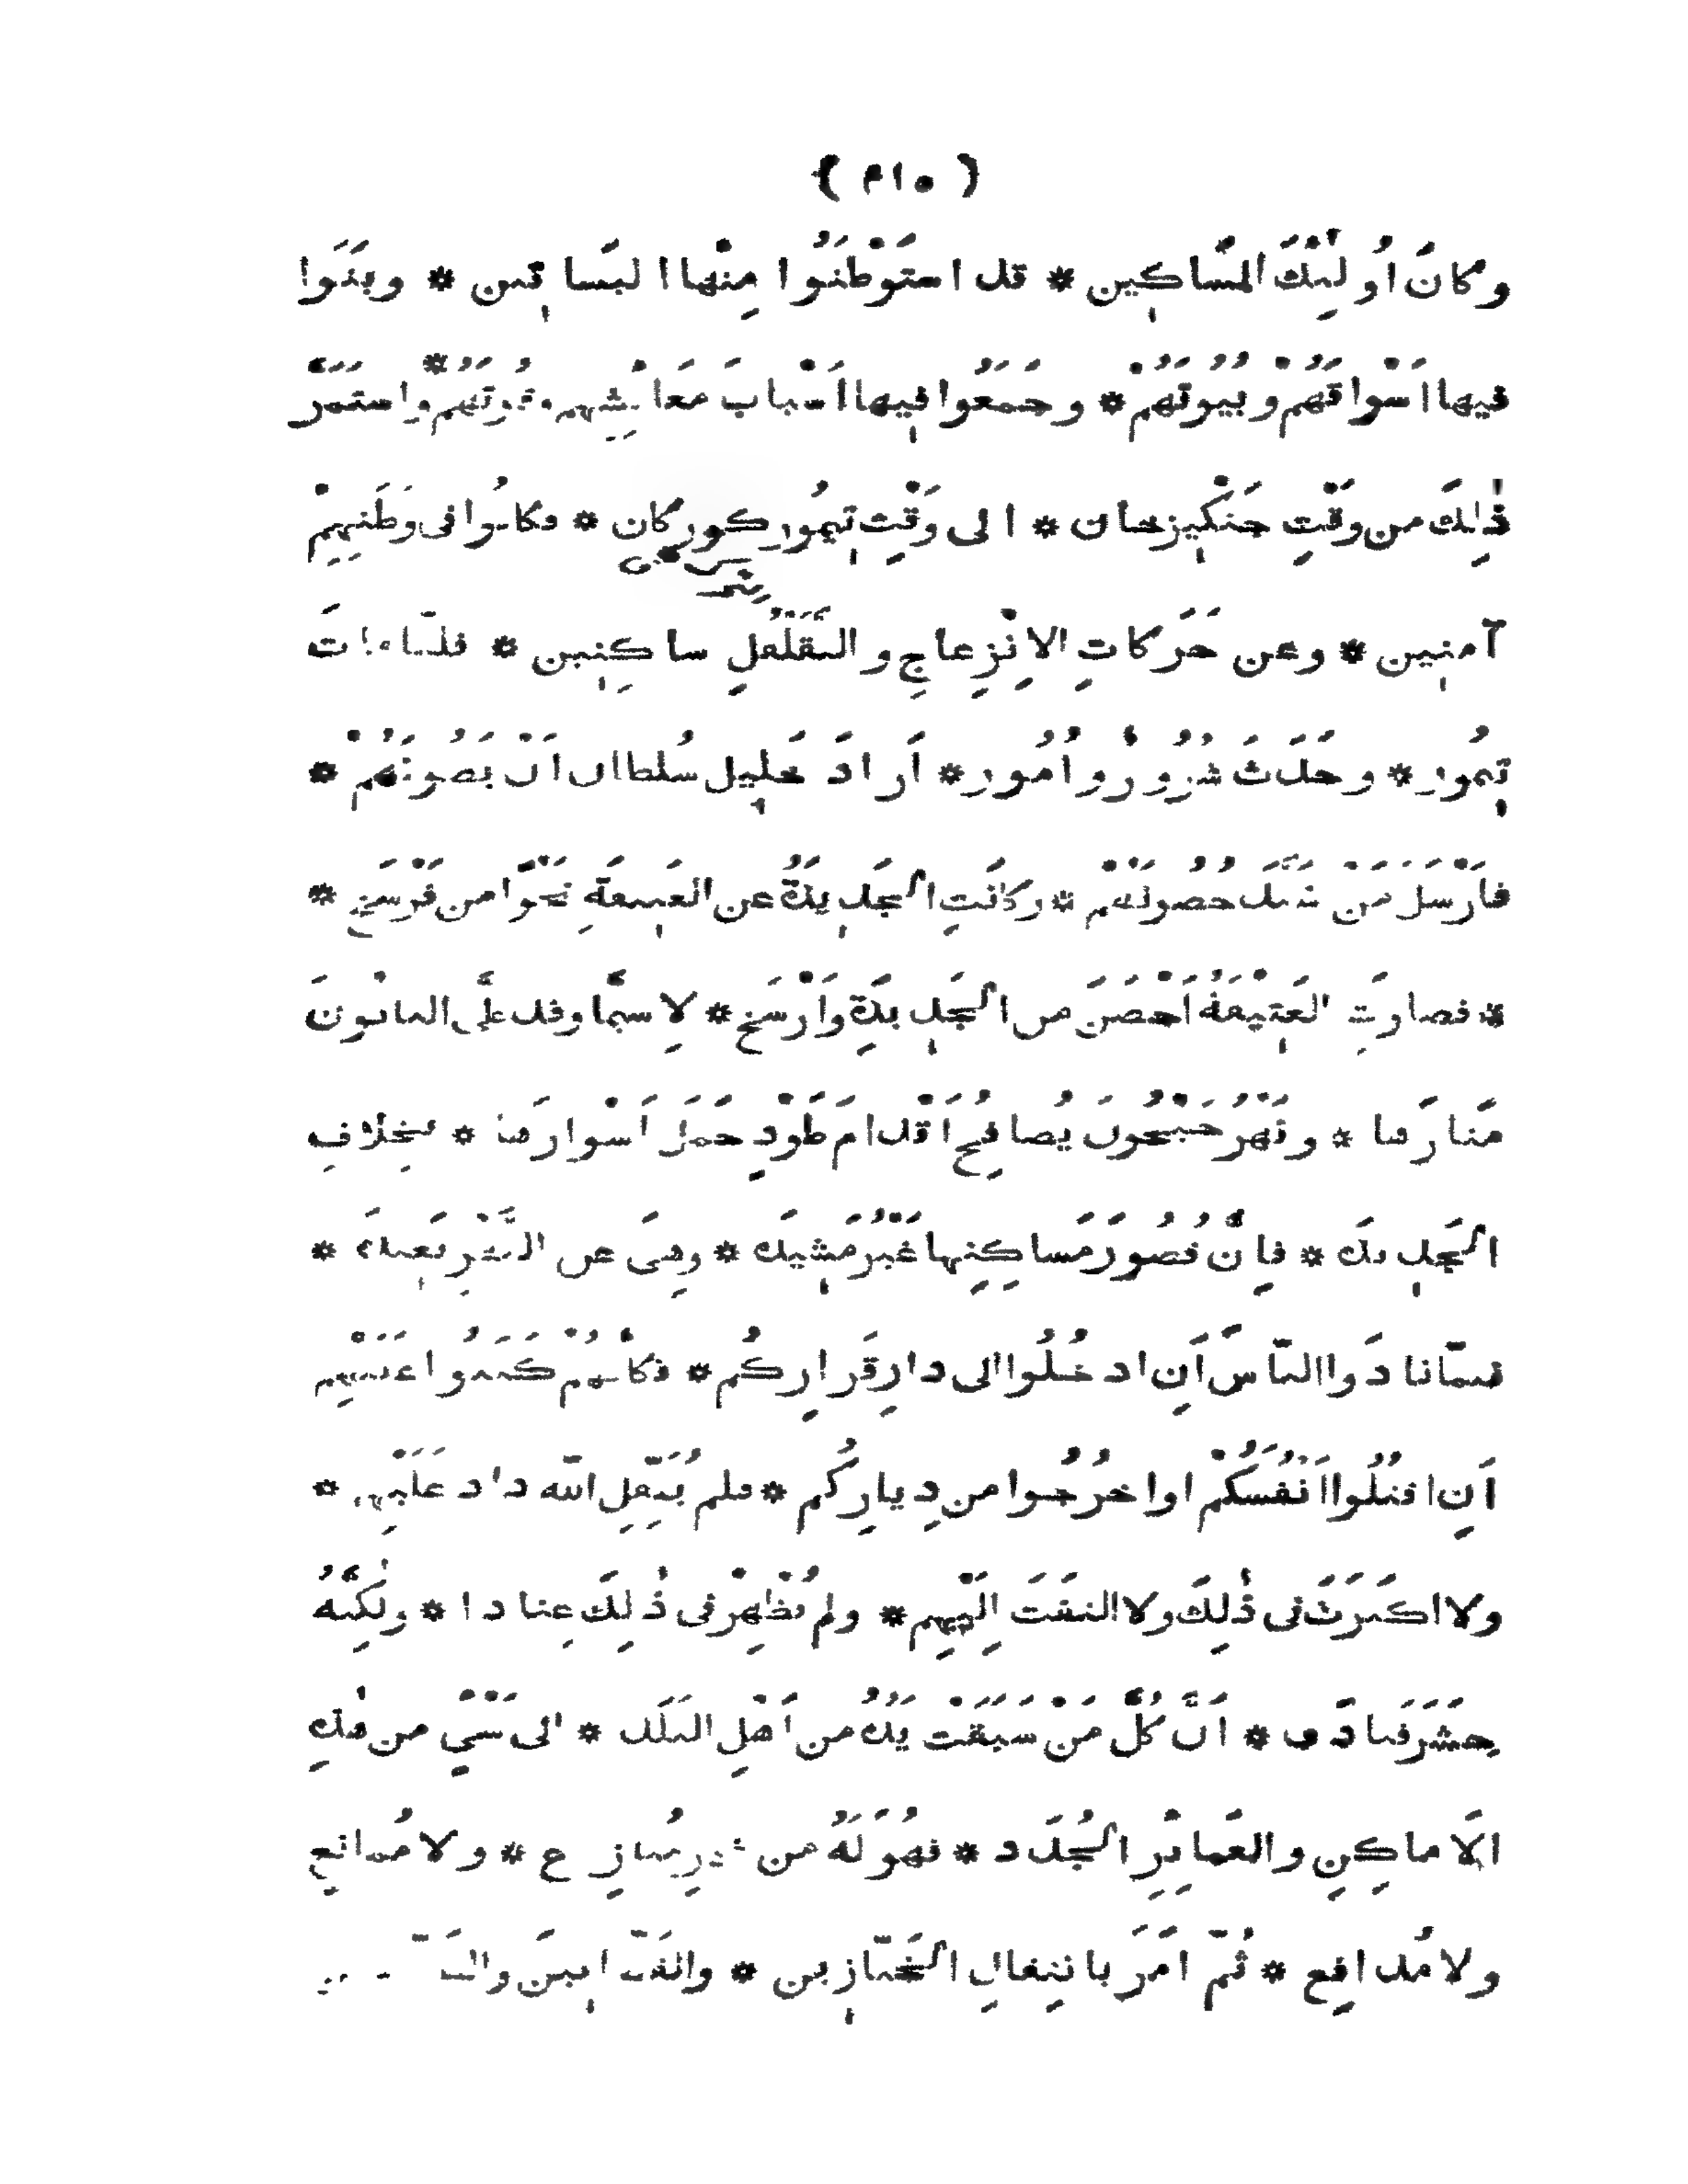 ( ٥١٢ )
وكانَ اُولٰئِكَ المَساكِين * قد استَوْطَنُوا مِنْها البَساتين * وبَنَوا
فيها اَسْواقَهُمْ وبُيُوتَهُمْ * وجَمَعُوا فيها اَسْبابَ مَعائِشِهم وقُوتَهُمْ * واستَمَرَّ
ذٰلِكَ من وَقْتِ جَنْكِيزخان * الى وَقْتِ تيمُور كوركان * وكانُوا فى وَطَنِهِمْ
آمنِين * وعن حَرَكاتِ الاِنْزِعاجِ والتَقَلْقُلِ ساكِنين * فلمّا ماتَ
تيمُور * وحَدَثَ شُرُورٌ واُمُور * اَرادَ خَليل سُلطان اَنْ يَصُونَهُمْ *
فاَرْسَلَ مَنْ شَيَّدَ حُصُونَهُمْ * وكانَتِ الجَديدَةُ عن العَتيقَةِ نَحْوًا من فَرْسَخ *
* فصارَتِ العَتيقَةُ اَحْصَنَ من الجَديدَةِ واَرْسَخ * لا سيّما وقد علَى القانُونَ
مَنارَها * ونَهْرُ جَيْحُونَ يُصافِحُ اَقْدامَ طَوْدٍ حَمَلَ اَسْوارَها * بخِلافِ
الجَديدَه * فاِنَّ قُصُورَ مَساكِنِها غَيْرُ مَشيدَه * وهىَ عن النَهْرِ بَعيدَه *
فيمّا نادَوا النّاسَ اَنِ ادخُلُوا الى دارِ قَرارِكُم * فكاَنَّهُمْ كَتَبُوا عَلَيْهِم
اَنِ اقتُلُوا اَنْفُسَكُمْ اوِ اخرُجُوا من دِيارِكُم * فلم يُثَقِّلِ الله داد عَلَيْهِم *
ولا اكتَرَثَ فى ذٰلِكَ ولا التفَتَ اِلَيْهِم * ولم يُظْهِرْ فى ذٰلِكَ عِنادا * ولٰكِنَّهُ
حَشَرَ فنادَى * اَنَّ كُلَّ مَنْ سَبَقَتْ يَدُهُ من اَهْلِ البَلَد * الى شَىْءٍ من هٰذِهِ
الاَماكِنِ والعَمائِرِ الجُدَد * فهُوَ لَهُ من غيرِ مُنازِع * ولا مُمانِع
ولا مُدافِع * ثُمّ اَمَرَ بانتِقالِ الخَبّازين * والقَصّابينَ